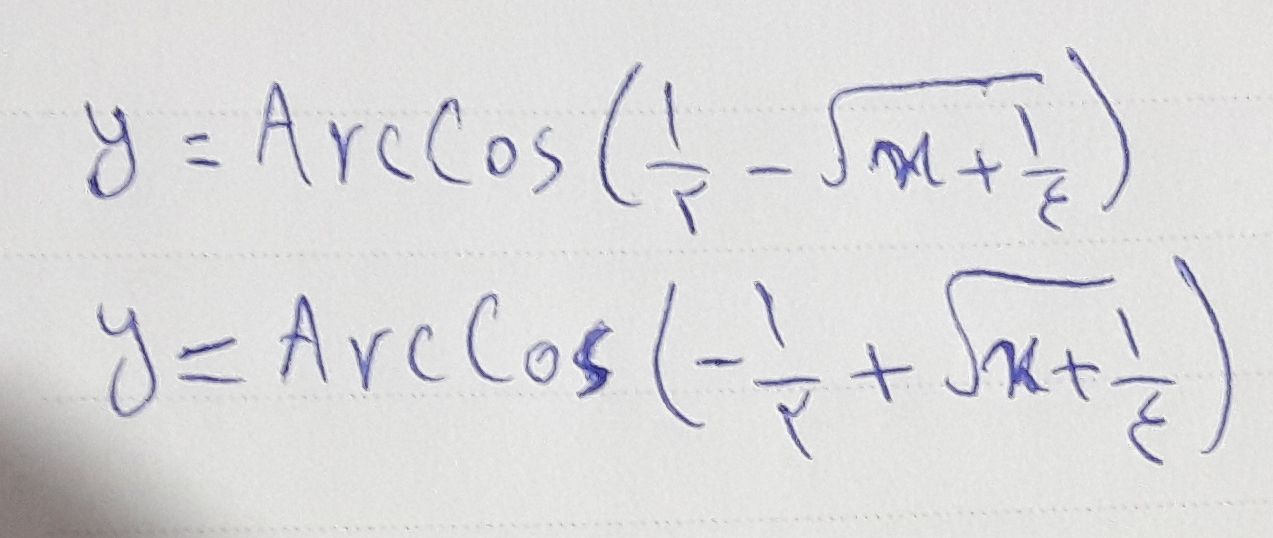 y = ArcCos(۱/۲ - √(x+۱/۴))
y = ArcCos(-۱/۲ + √(x+۱/۴))